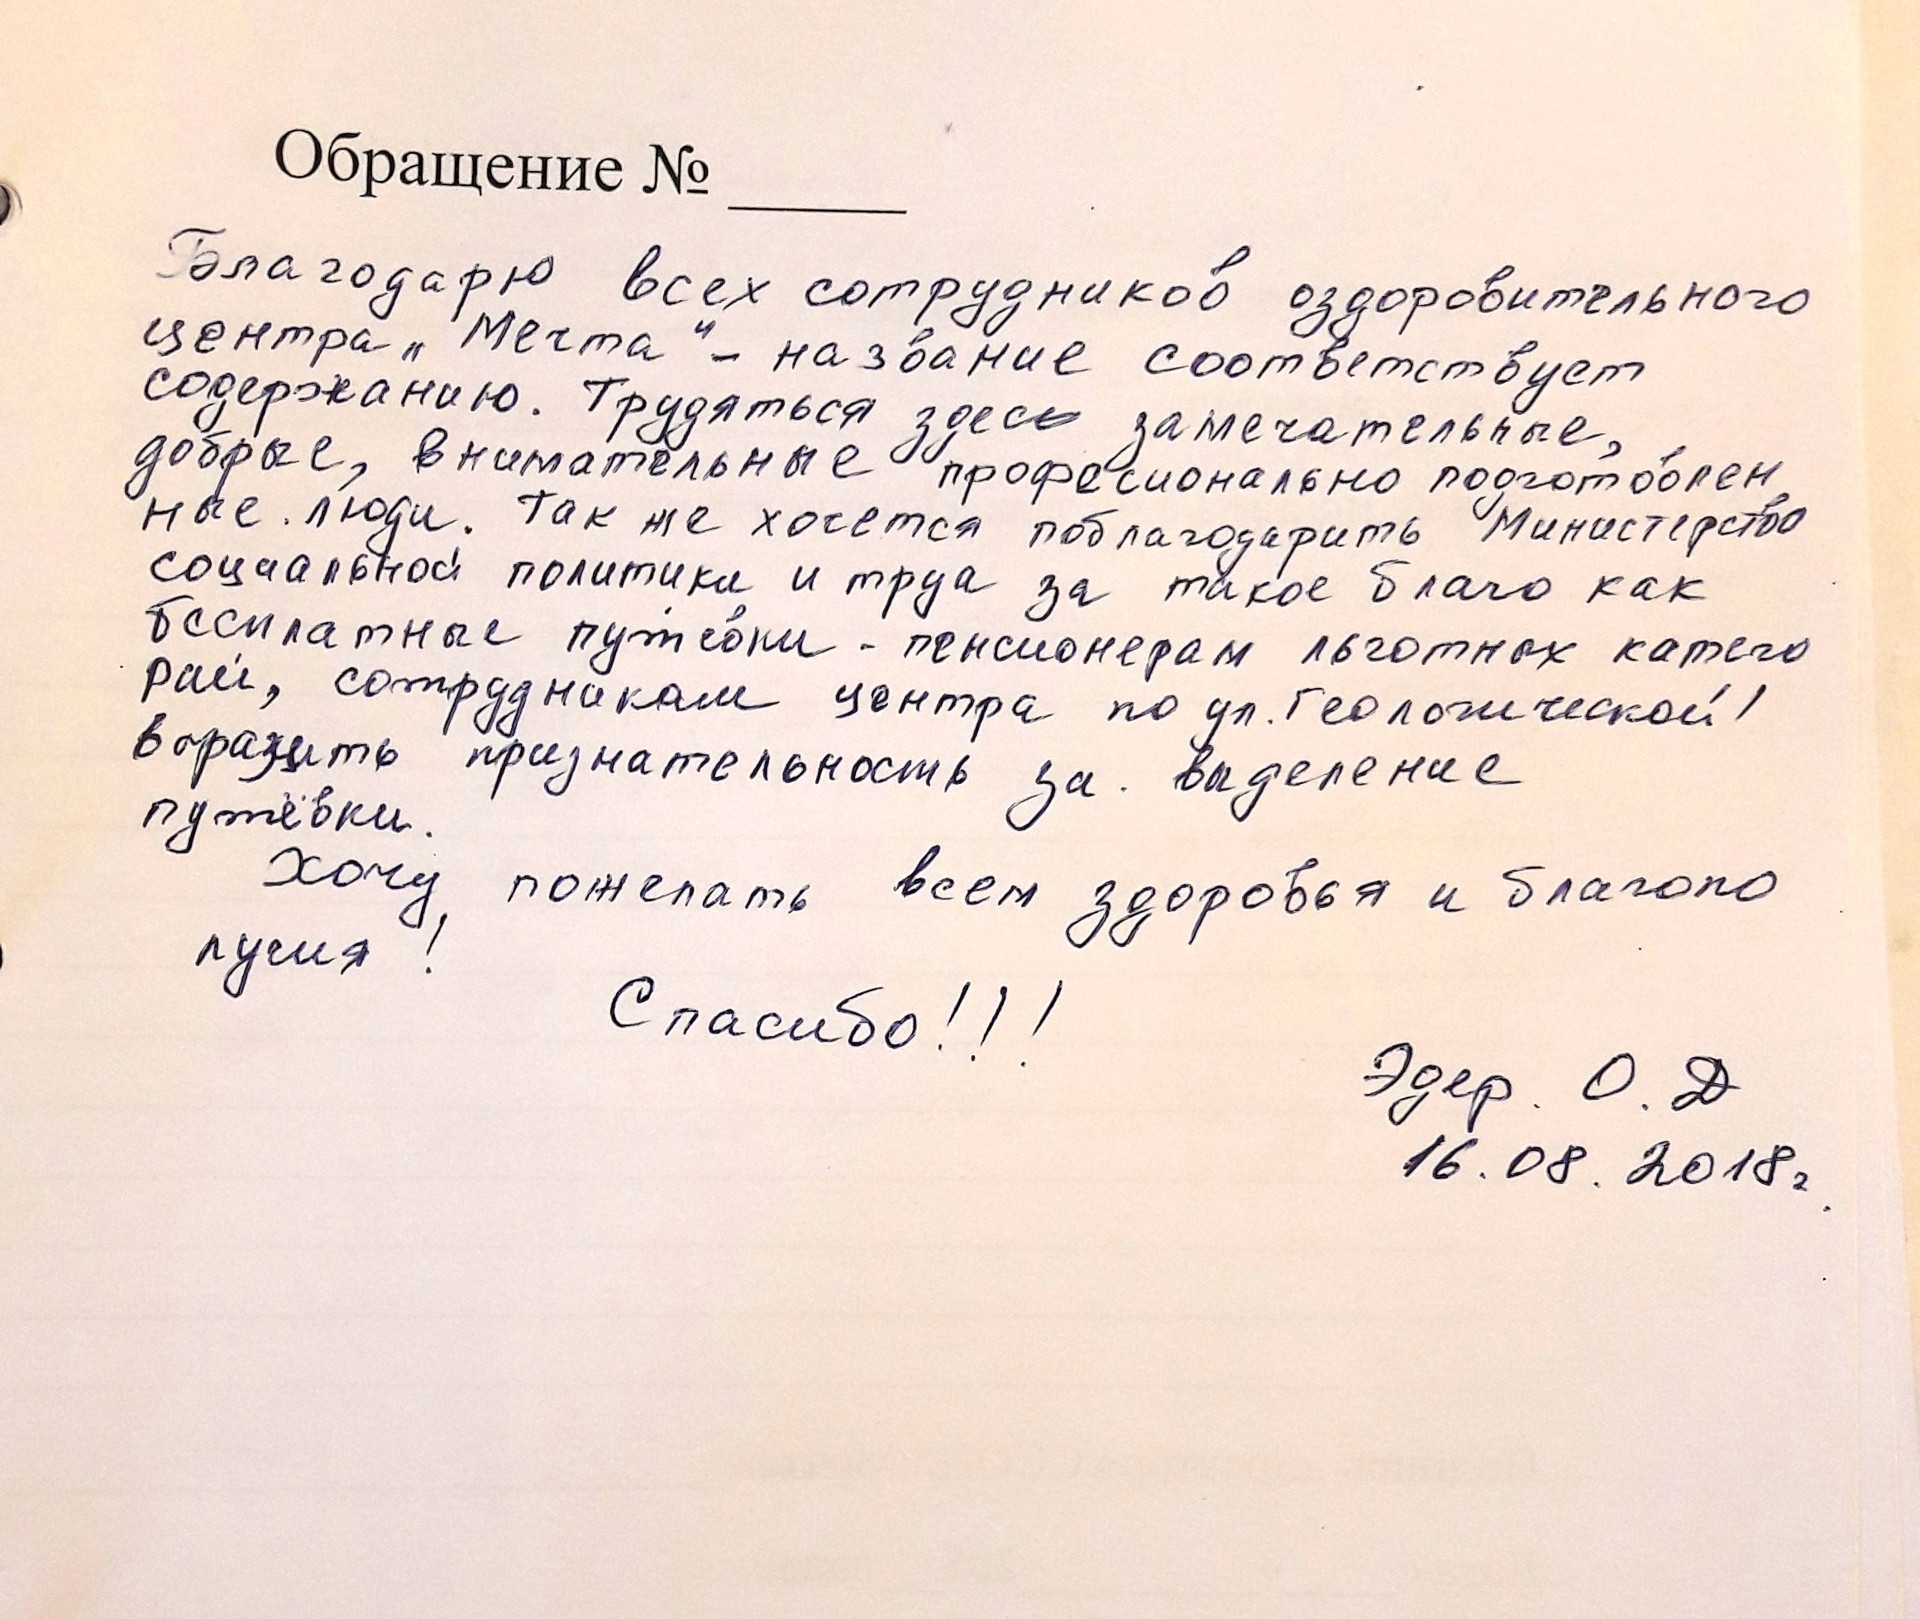 Обращение № _____
Благодарю всех сотрудников оздоровительного
центра „Мечта“ – название соответствует
содержанию. Трудяться здесь замечательные,
добрые, внимательные професионально подготовлен
ные люди. Так же хочется поблагодарить Министерство
социальной политики и труа за такое благо как
бесплатные путёвки - пенсионерам льготных катего
рий, сотрудникам центра по ул. Геологической!
выразить признательность за выделение
путёвки.
Хочу пожелать всем здоровья и благопо
лучия!
Спасибо!!!
Эдер. О. Д
16.08.2018г.